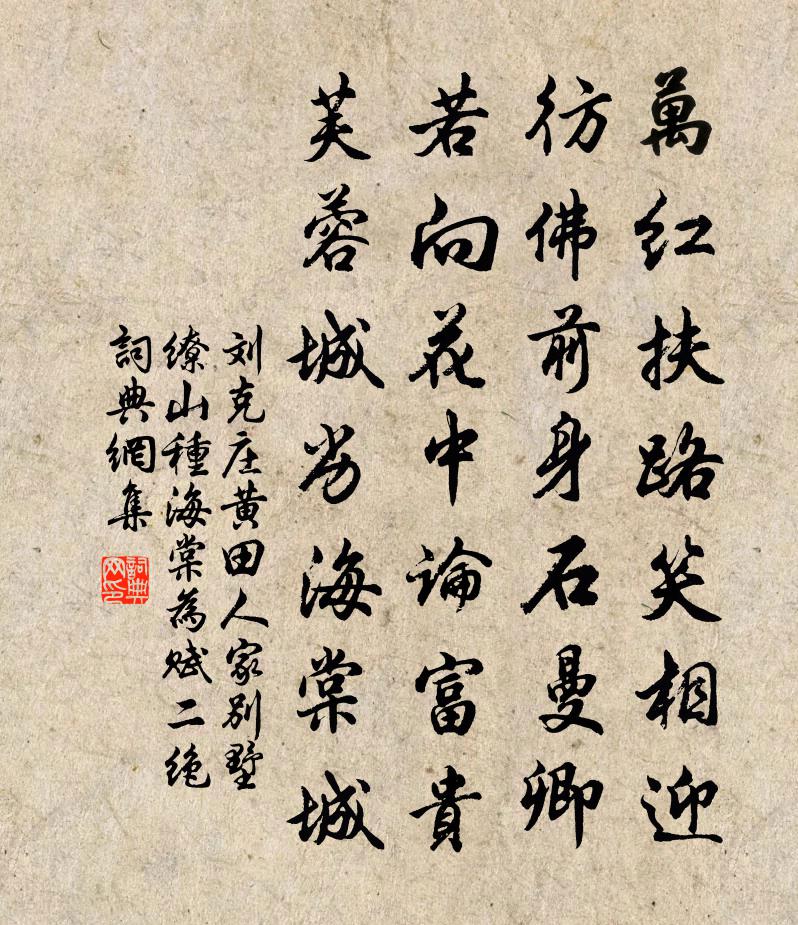 萬紅扶路笑相迎
彷佛前身石曼卿
若向花中論富貴
芙蓉城劣海棠城
刘克庄黄田人家別墅
繚山種海棠為賦二絶
詞典網集
詞典
网印